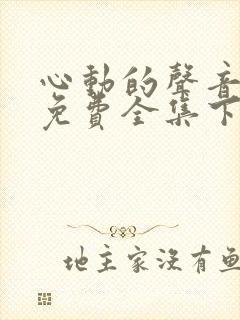 心動的聲音
免費全集下
地主家沒有魚